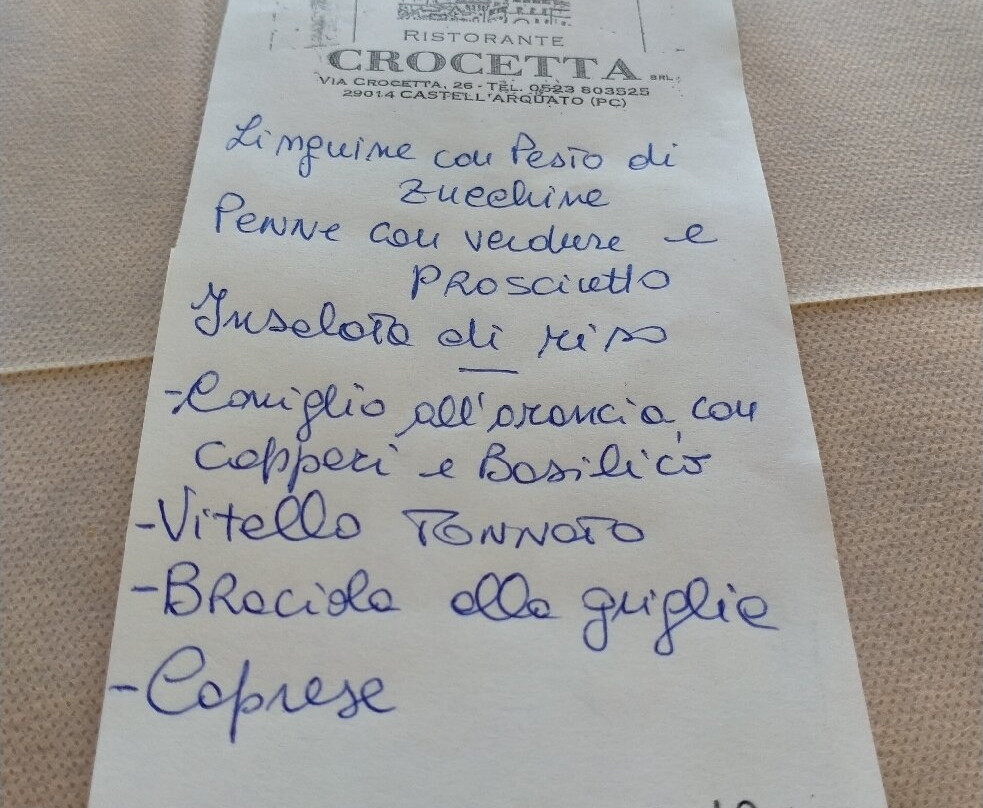 RISTORANTE
CROCETTA SRL
VIA CROCETTA, 26 - TEL. 0523 803525
29014 CASTELL'ARQUATO (PC)
Linguine con Pesto di
Zucchine
Penne con verdure e
Prosciutto
Insalata di riso
-Coniglio all'arancia con
capperi e Basilico
-Vitello Tonnato
-Braciola alla griglia
-Caprese